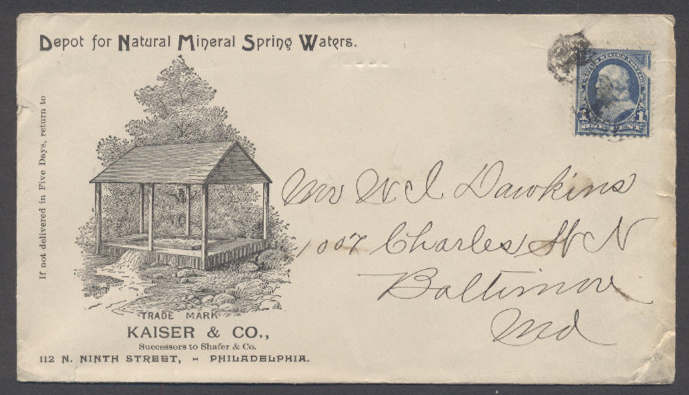 Depot for Natural Mineral Spring Waters.
If not delivered in Five Days, return to
TRADE MARK
KAISER & CO.,
Successors to Shafer & Co.
112 N. NINTH STREET, - PHILADELPHIA.
1 1
Mr W I Dawkins
1007 Charles St N
Baltimore
Md